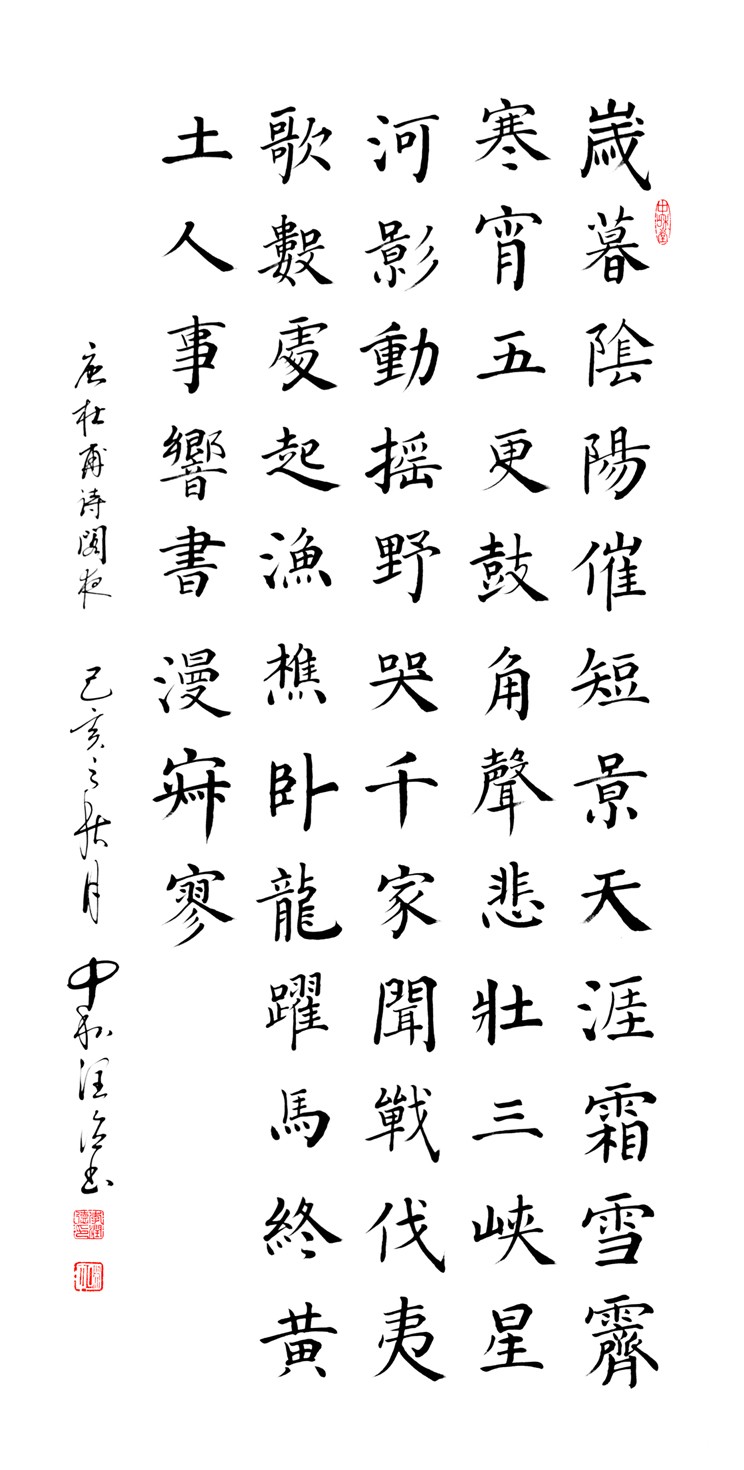 歲暮陰陽催短景天涯霜雪霽
寒宵五更鼓角聲悲壯三峽星
河影動摇野哭千家聞戰伐夷
歌數處起漁樵卧龍躍馬終黃
土人事響書漫寂寥
唐杜甫诗閣夜 己亥之秋月 中和汪书